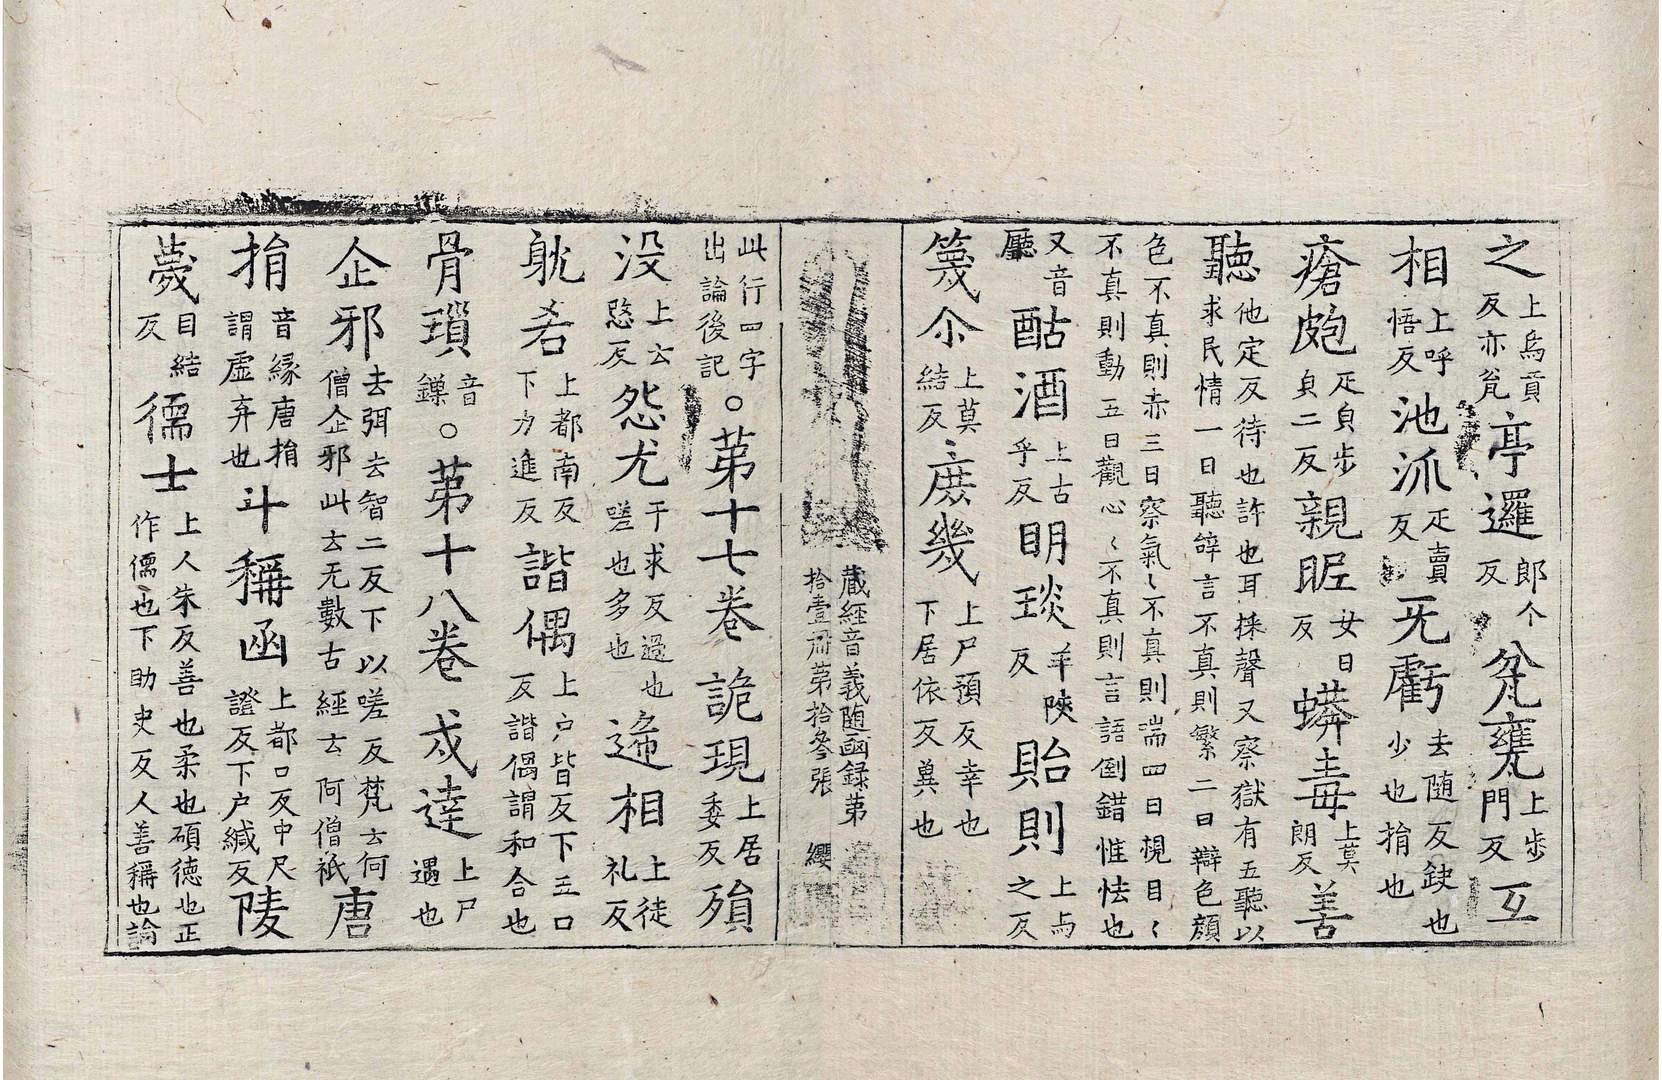 之 上烏貢反亦瓮 亭邏 郎个反 瓫甕 上步門反 互
相 上呼悟反 池派 疋賣反 旡虧 去随反缺也少也捐也
瘡皰 疋皃步皃二反 親昵 女日反 蟒毒 上莫朗反 善
聽 他定反待也許也耳採聲又察獄有五聽以求民情一曰聽辝言不真則繁二曰辯色顔
色不真則赤三曰察氣〻不真則喘四曰視目〻不真則動五曰觀心〻不真則言語倒錯惟怯也
又音廳 酤酒 上古乎反 明琰 羊陝反 貽則 上与之反
篾尒 上莫結反 庶幾 上尸預反幸也下居依反兾也
藏經音義随函録第拾壹冊第拾叅張 纓
此行四字出論後記 ○第十七卷 詭現 上居委反 殞
没 上云愍反 怨尤 于求反過也嗟也多也 递相 上徒礼反
躭𠫤 上都南反下力進反 諧偶 上户皆反下五口反諧偶謂和合也
骨瑣 音鏁 ○第十八卷 戍達 上尸遇也
企邪 去弭去智二反下以嗟反梵云何僧企邪此云无數古經云阿僧祇 唐
捐 音縁唐捐謂虚弃也 斗稱函 上都口反中尺證反下户緘反 陵
蔑 目結反 儒士 上人朱反善也柔也碩德也正作儒也下助史反人善稱也論